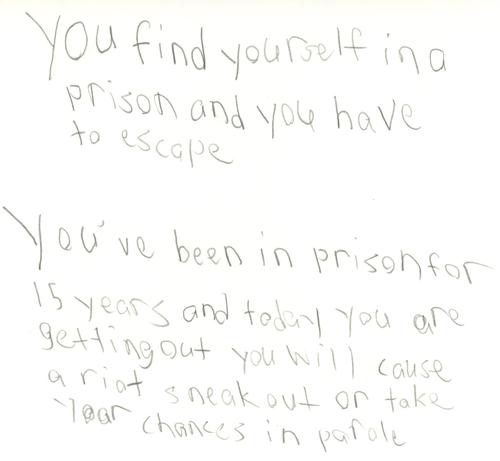 You find yourself in a
prison and you have
to escape
You've been in prison for
15 years and today you are
getting out you will cause
a riot sneak out or take
your chances in parole